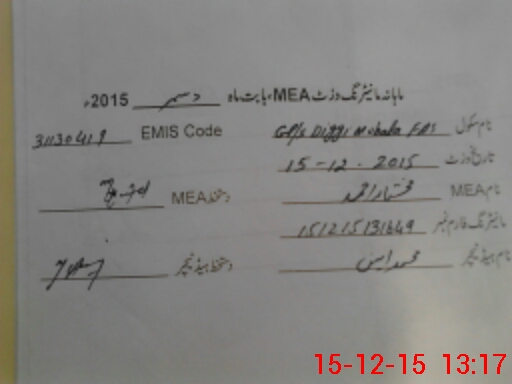 ماہانہ مانیٹرنگ وزٹ MEA، بابت ماہ دسمبر 2015ء
نام سکول GPS Diggi Mohala FAS EMIS Code 31130419
تاریخ وزٹ 15-12-2015
نام MEA مختار احمد دستخط MEA
مانیٹرنگ فارم نمبر 151215131649
نام ہیڈ ٹیچر محمد انیس دستخط ہیڈ ٹیچر
15-12-15 13:17